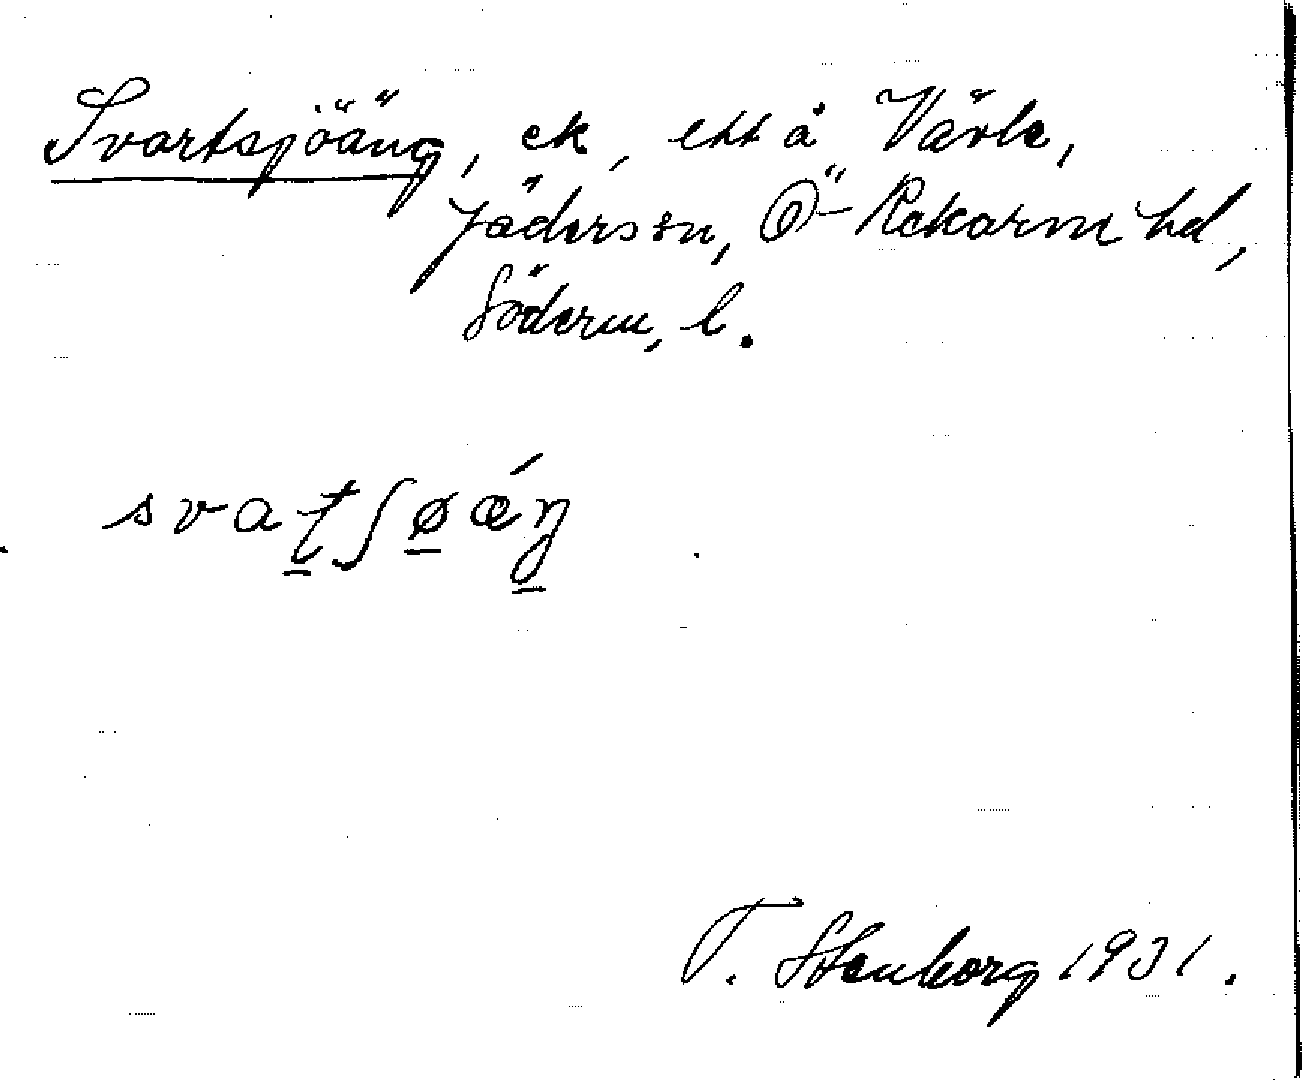 Svartsjöäng, ek, ett å Vävle,
Jäders sn, Ö-Rekarne hd,
Söderm. l.
svaṯʃø̱ǽŋ̱
T. Stenborg 1931.